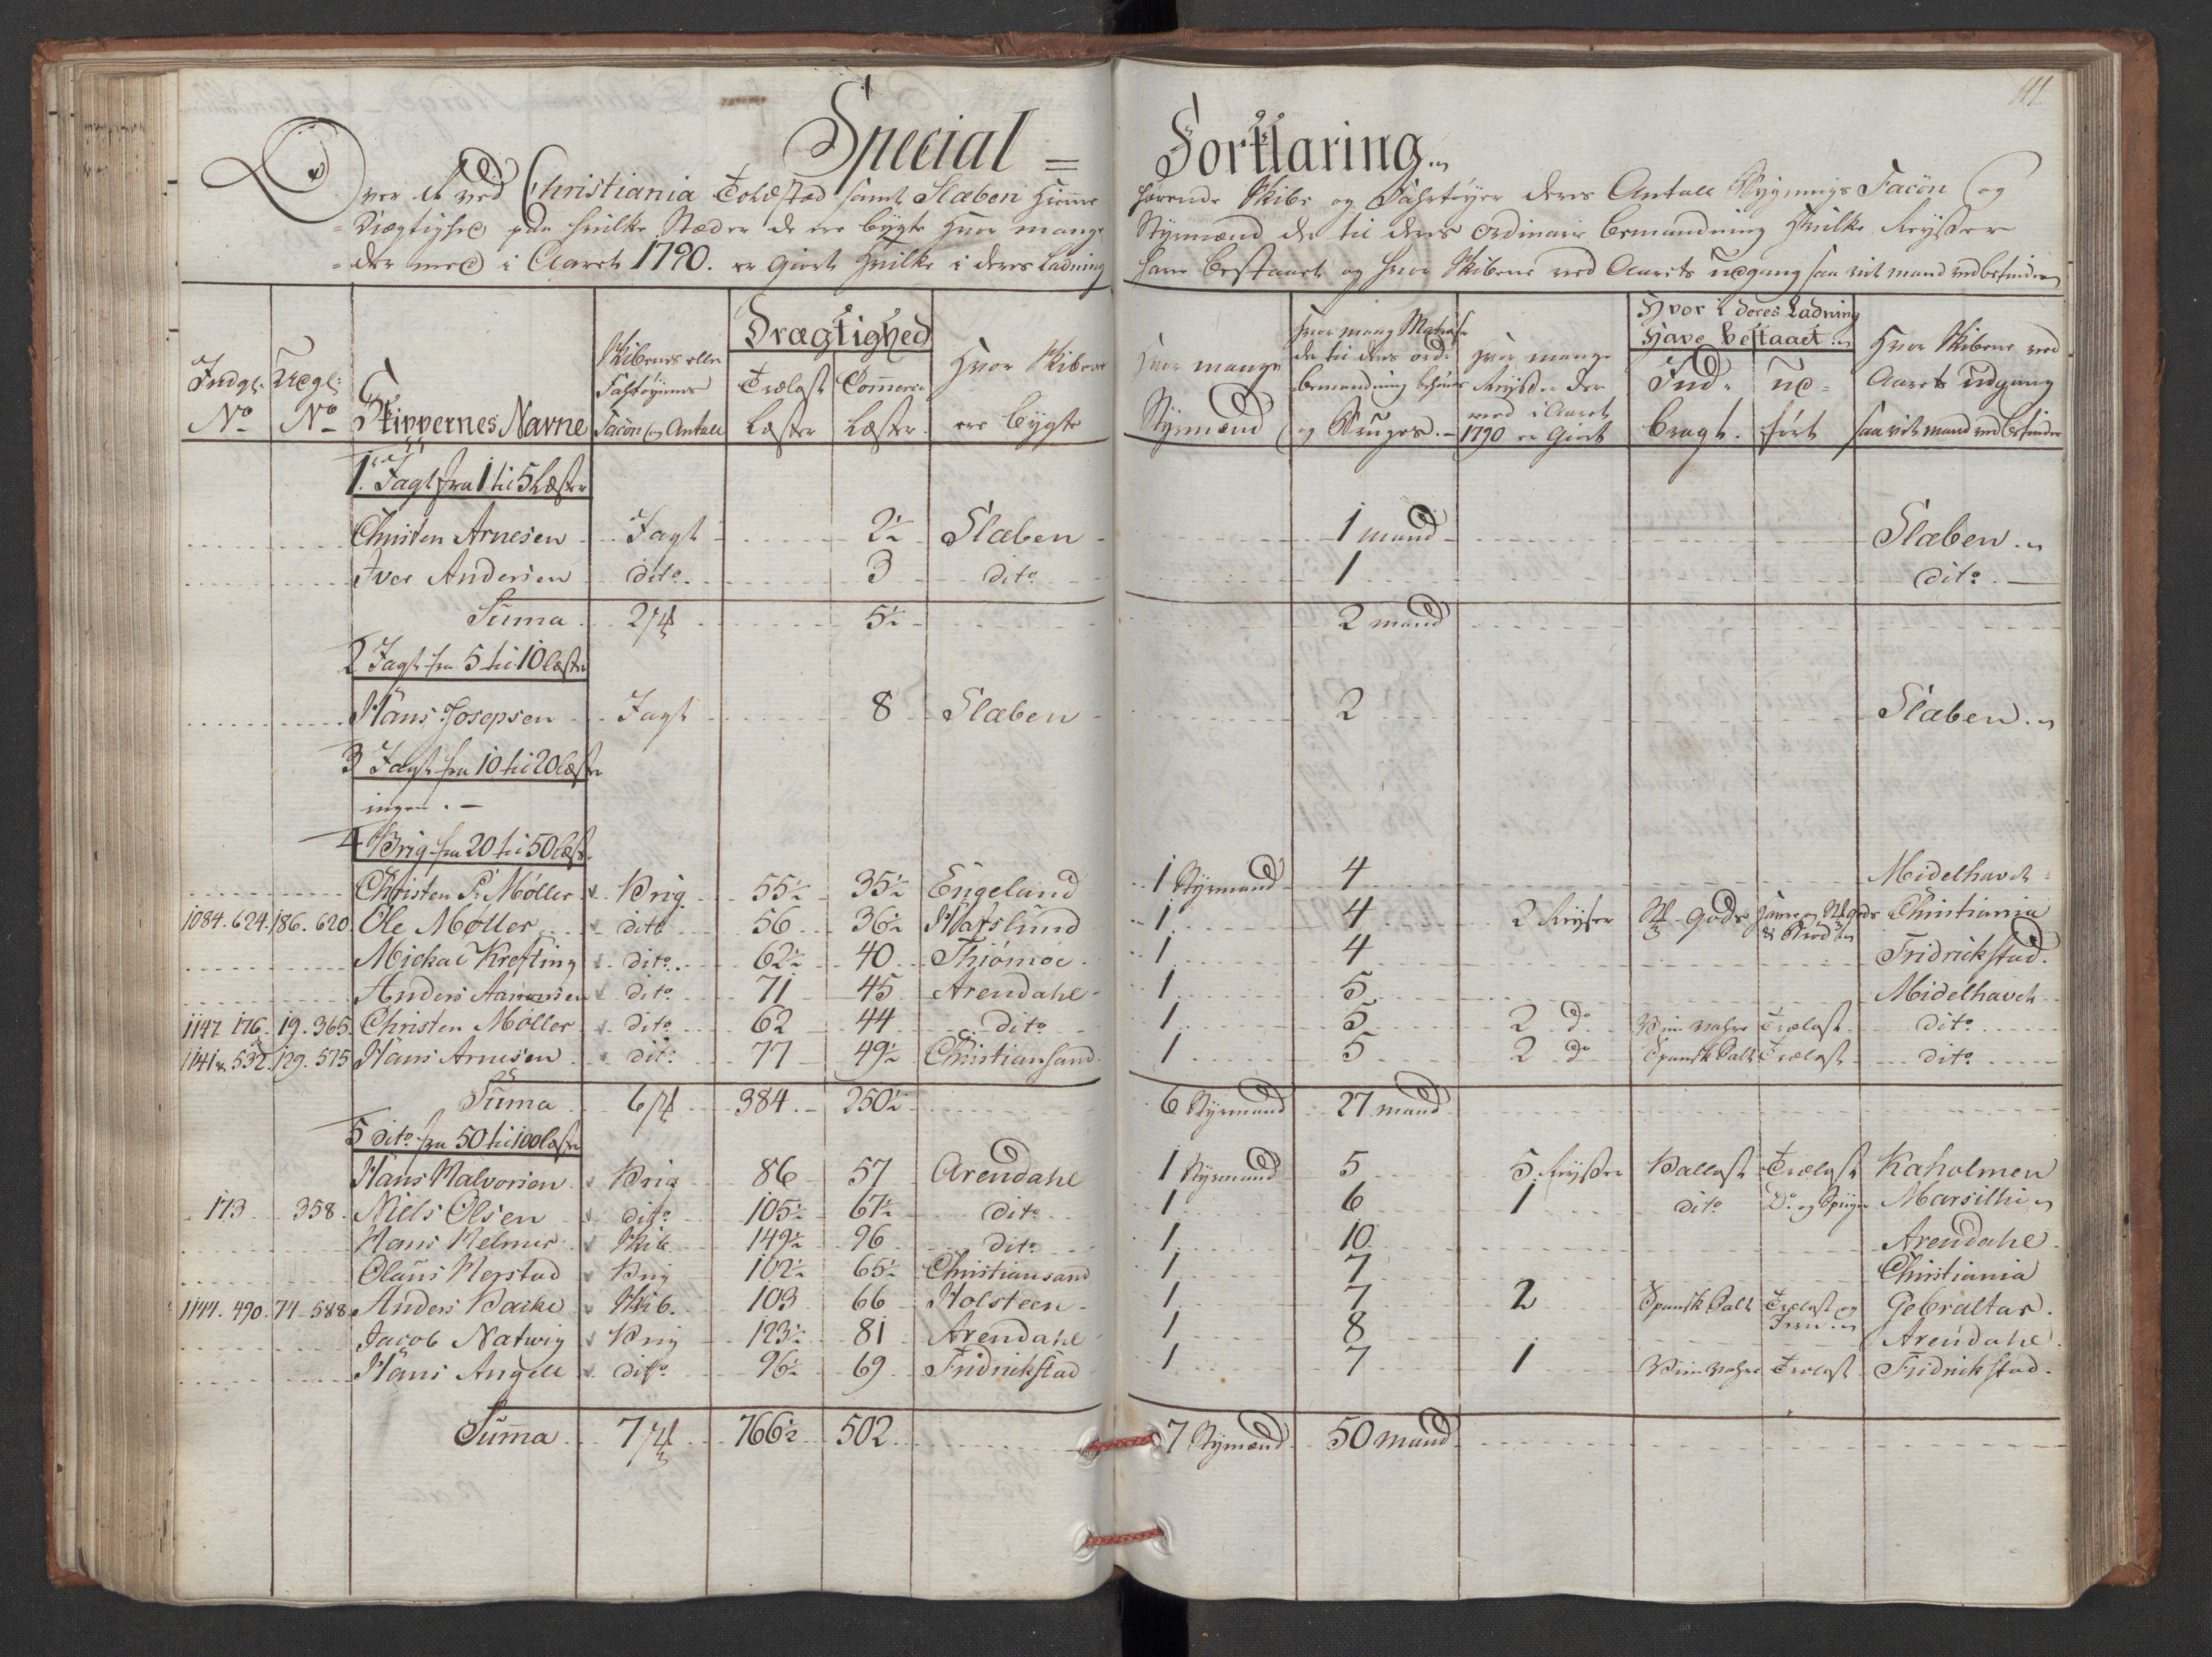 141
Special = Forklaring
Over de ved Christiania Toldsted samt Slæben Hiemme hørende Skibe og Fahrtøyer deres Antall Bygnings Facòn og
Drægtighed paa hvilke Stæder de ere bygte Hvor mange Styrmænd der til deres ordinaire bemanding Hvilke Reyser
der med i Aaret 1790. er giort Hvilke i deres Ladning have bestaaet og hvor Skibene ved Aarets udgang saa vit mand ved befinder
Indg: No
Udg: No
Skippernes Navne
Skibenes eller Fahrtøyernes Facòn og Antall
Drægtighed
Trælast Læster
Commerce Læster
Hvor Skibene ere bygte
Hvor mange Styrmænd
Hvor mange Matroser der til deres ord: bemanding behøves og Bruges
Hvor mange Reyser der med i Aaret 1790 er giort
Hvor i deres Ladning Have bestaaet
Ind- bragt
ud- ført
Hvor Skibene ved Aarets udgang saa vit mand ved befinder
1. Jagt fra 1 til 5 Læster
Christen Arnesen Jagt 2½ Slæben 1 mand Slæben
Iver Andersen dito 3 dito 1 dito
Suma 2 5½ 2 mand
2 Jagt fra 5 til 10 læster
Hans Josepsen Jagt 8 Slæben 2 Slæben
3 Jagt fra 10 til 20 læster
ingen
4 Brig fra 20 til 50 læst
Christen P: Møller Brig 55½ 35½ Engeland 1 Styrmand 4 Midelhavet
1084. 624. 186. 620 Ole Møller dito 56 36½ Hafslund 1 4 2 Reyser gods Christiania
Michael Krefting dito 62½ 40 Thiømøe 1 4 Fridrickstad
Anders Aamonsen dito 71 45 Arendahl 1 5 Midelhavet
1147 176. 19. 365 Christen Møller dito 62 44 dito 1 5 2 do Trælast dito
1141 & 532. 129. 575 Hans Arnesen dito 77 49½ Christiansand 1 5 2 do Spansk Salt Trælast dito
Suma 6 384 250½ 6 Styrmænd 27 mand
5 dito fra 50 til 100 læster
Hans Halvorsen Brig 86 57 Arendahl 1 Styrmand 5 5 Reyser Ballast Trælast Kaholmen
173 358 Niels Olsen dito 105½ 67½ dito 1 6 1 dito Do og Spiger Marsillie
Hans Helmer Skib 149½ 96 dito 1 10 Arendahl
Olaus Nerstad Brig 102½ 65½ Christiansand 1 7 Christiania
1144. 490. 74 588 Anders Backe Skib 103 66 Holsteen 1 7 2 Spansk Salt Trælast og Jern Gebraltar
Jacob Natwig Brig 123½ 81 Arendahl 1 8 Arendahl
Hans Angell dito 96½ 69 Fridrickstad 1 7 1 Trælast Fridrickstad
Summa 7 766½ 502 7 Styrmænd 50 mand